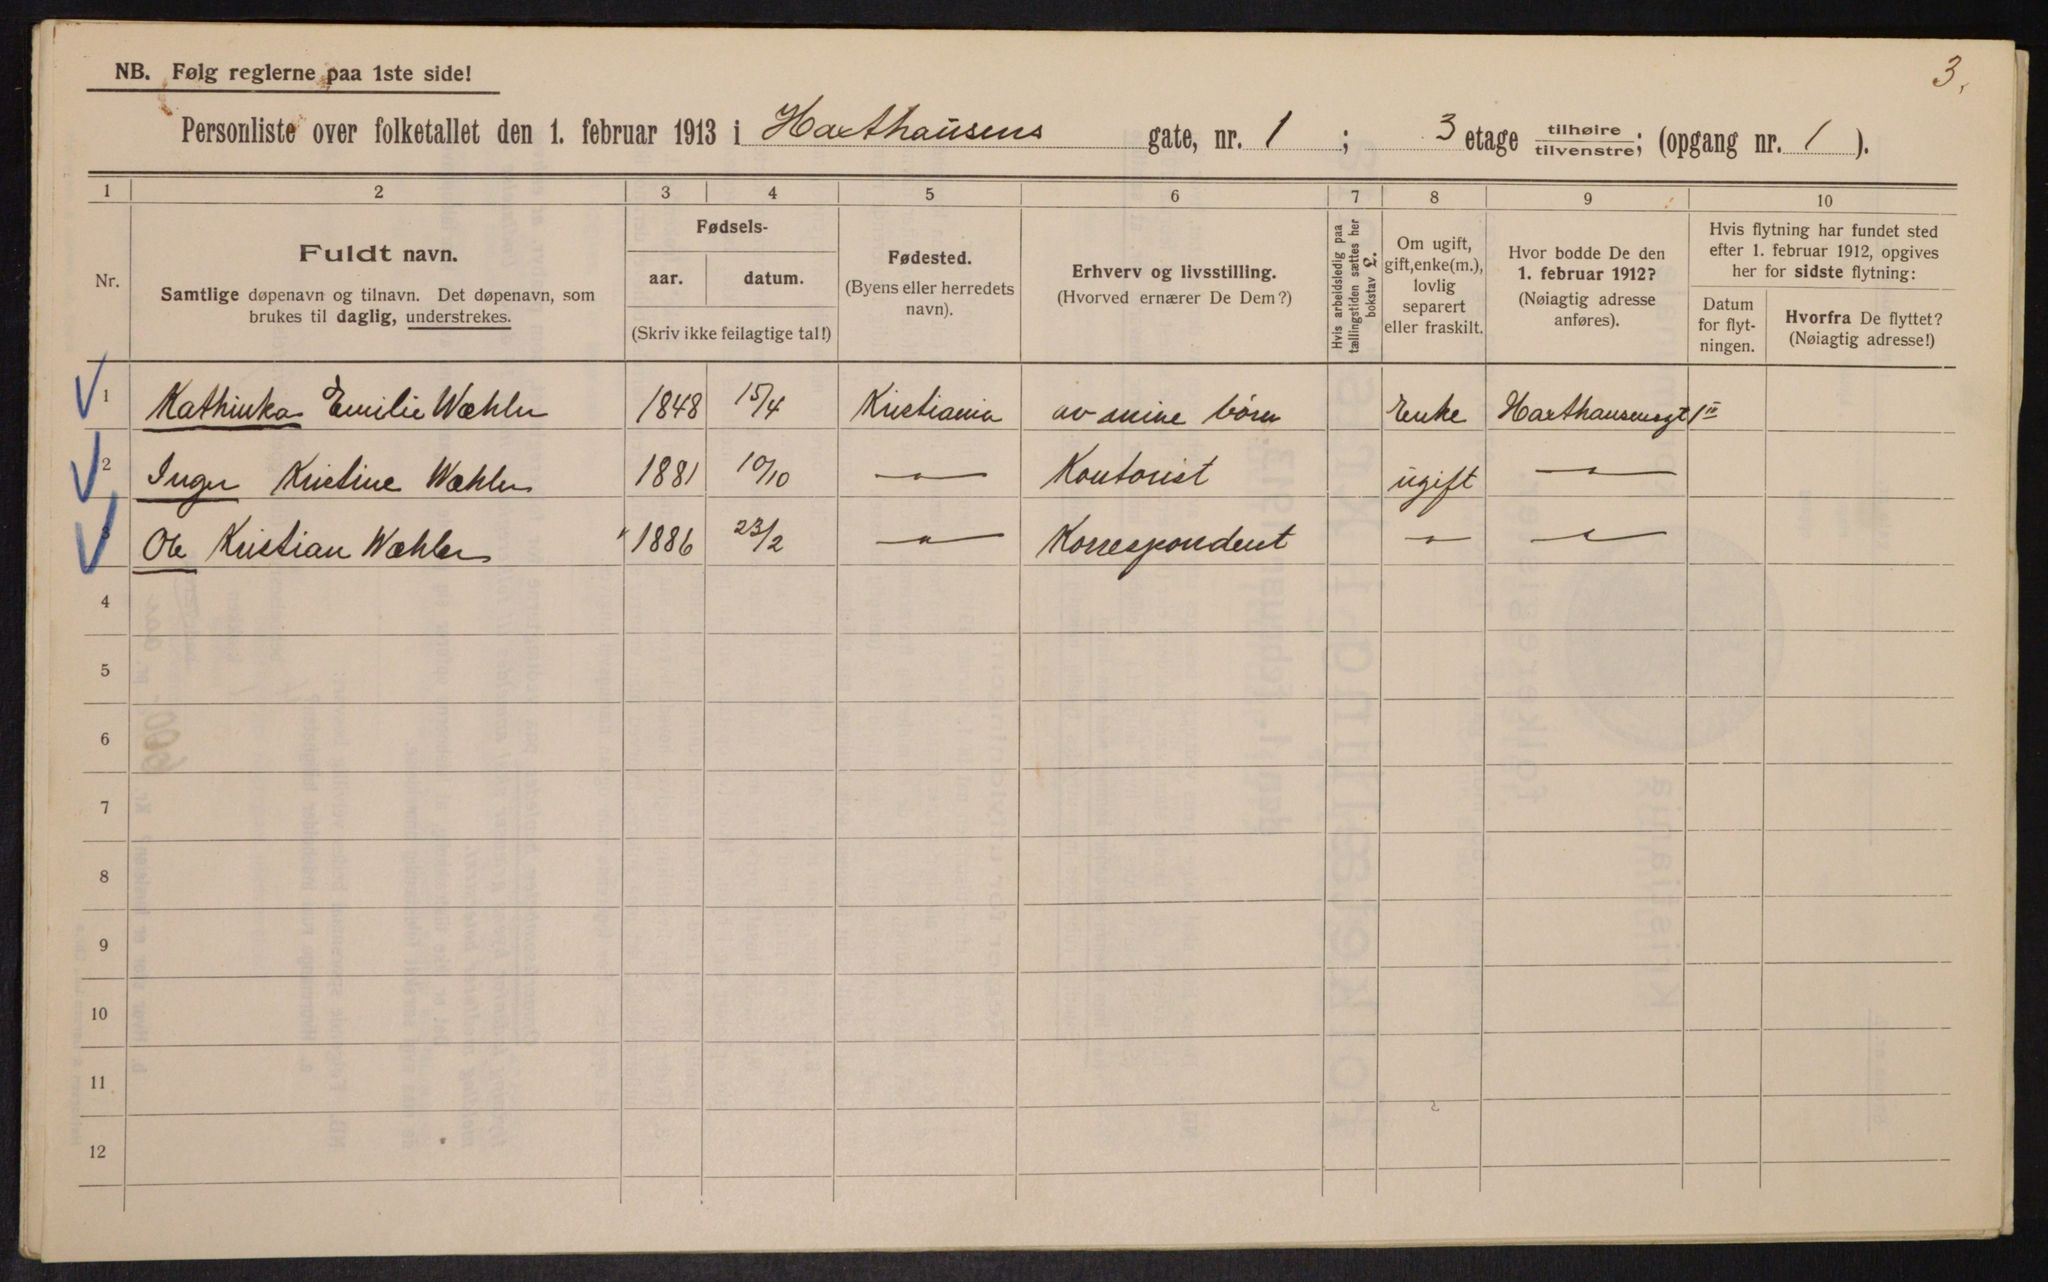 3.
NB. Følg reglerne paa 1ste side!
Personliste over folketallet den 1. februar 1913 i Haxthausens gate, nr. 1 ; 3 etage tilhøire/tilvenstre; (opgang nr. 1 ).
1 2 3 4 5 6 7 8 9 10
Nr.
Fuldt navn.
Samtlige døpenavn og tilnavn. Det døpenavn, som
brukes til daglig, understrekes.
Fødsels-
aar. datum.
(Skriv ikke feilagtige tal!)
Fødested.
(Byens eller herredets
navn).
Erhverv og livsstilling.
(Hvorved ernærer De Dem?)
Hvis arbeidsledig paa
tællingstiden sættes her
bokstav L.
Om ugift,
gift, enke(m.),
lovlig
separert
eller fraskilt.
Hvor bodde De den
1. februar 1912?
(Nøiagtig adresse
anføres).
Hvis flytning har fundet sted
efter 1. februar 1912, opgives
her for sidste flytning:
Datum
for flyt-
ningen.
Hvorfra De flyttet?
(Nøiagtig adresse!)
1 Kathinka Emilie Wæhler 1848 15/4 Kristiania av mine børn Enke Haxthausensgt 1 IV
2 Inger Kristine Wæhler 1881 10/10 — " — Kontorist ugift — " —
3 Ole Kristian Wæhler 1886 23/2 — " — Korrespondent — " — — " —
4
5
6
7
8
9
10
11
12